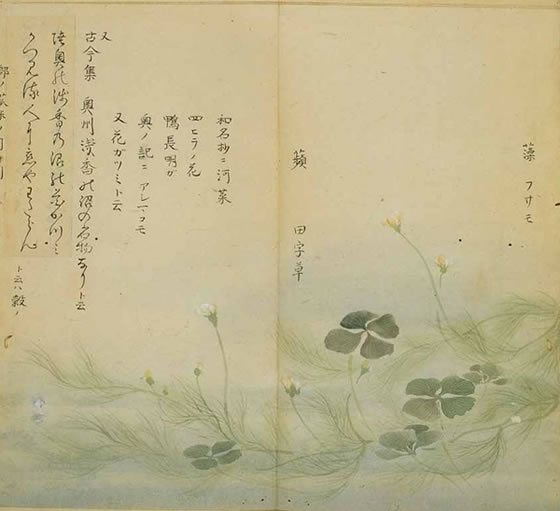 藻 フサモ
蘋 田字草
和名抄ニ河菜
四ヒラノ花
鴨長明が
奥ノ記ニ
又花ガツミト云
又
古今集 奥州淺香の沼の名物なりト云
陸奥の淺香乃沼の花かつミ
かつみる人に恋やわたらん
ト云ハ穀ノ